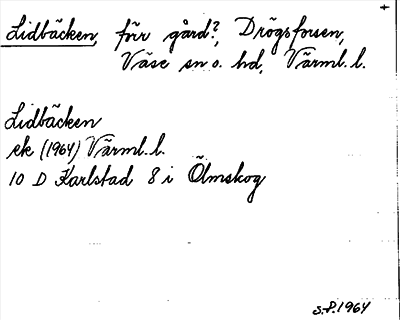 Lidbäcken, förr gård?, Drögsforsen,
Väse sn o. hd, Värml. l.
Lidbäcken
ek (1964) Värml. l.
10 D Karlstad 8 i Ölmskog
S.P. 1964